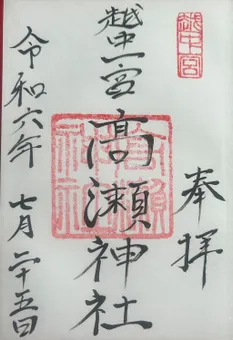 越中宮
奉拝
越中一宮
高瀬神社
高瀬神社
令和六年
七月二十五日